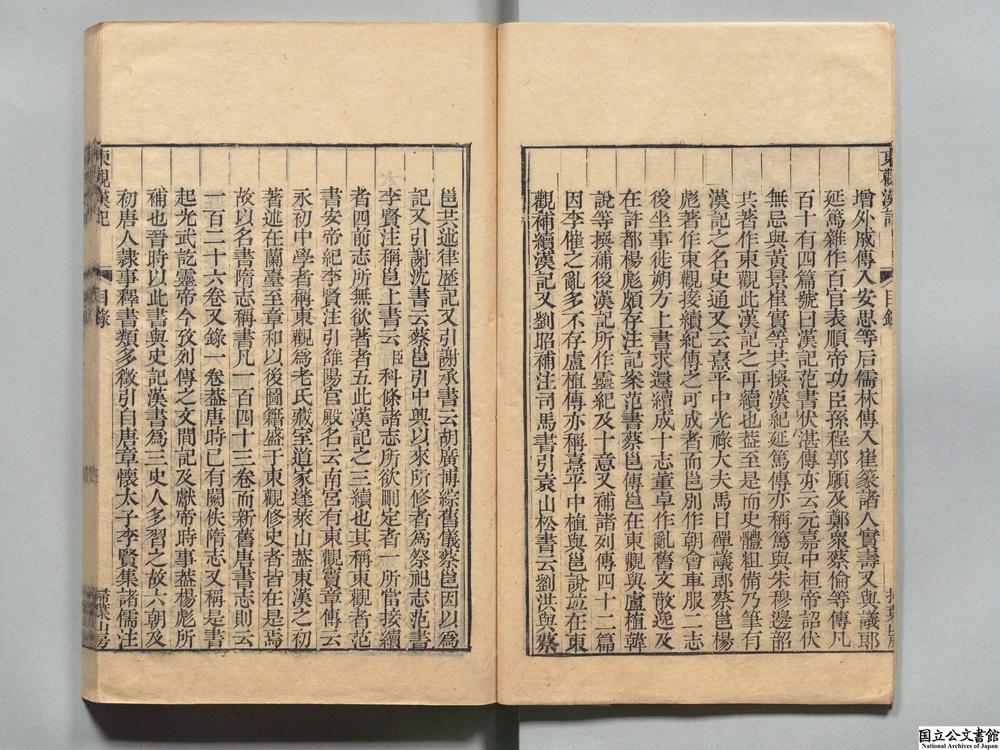 東觀漢記
目錄
增外戚傳入安思等后儒林傳入崔篆諸人實壽又與議郎
延篤雜作百官表順帝功臣孫程郭願及鄭衆蔡倫等傳凡
百十有四篇號曰漢記范書伏湛傳亦云元嘉中桓帝詔伏
無忌與黃景崔寔等共撰漢紀延篤傳亦稱篤與朱穆邊韶
共著作東觀此漢記之再續也葢至是而史體粗備乃筆有
漢記之名史通又云熹平中光祿大夫馬日磾議郎蔡邕楊
彪著作東觀接續紀傳之可成者而邕別作朝會車服二志
後坐事徙朔方上書求還續成十志董卓作亂舊文散逸及
在許都楊彪頗存注記案范書蔡邕傳邕在東觀與盧植韓
說等撰補後漢記所作靈紀及十意又補諸列傳四十二篇
因李傕之亂多不存盧植傳亦稱熹平中植與邕說並在東
觀補續漢記又劉昭補注司馬書引袁山松書云劉洪與蔡
邕共述律歷記又引謝承書云胡廣博綜舊儀蔡邕因以爲
記又引謝沈書云蔡邕引中興以來所修者爲祭祀志范書
李賢注稱邕上書云臣科條諸志所欲刪定者一所當接續
者四前志所無欲著者五此漢記之三續也其稱東觀者范
書安帝紀李賢注引雒陽宮殿名云南宮有東觀竇章傳云
永初中學者稱東觀爲老氏藏室道家蓬萊山葢東漢之初
著述在蘭臺至章和以後圖籍盛于東觀修史者皆在是焉
故以名書隋志稱書凡一百四十三卷而新舊唐書志則云
一百二十六卷又錄一卷葢唐時已有闕佚隋志又稱是書
起光武訖靈帝今攷列傳之文間記及獻帝時事葢楊彪所
補也晉時以此書與史記漢書爲三史人多習之故六朝及
初唐人隸事釋書類多徵引自唐章懷太子李賢集諸儒注
東觀漢記
目錄
掃葉山房